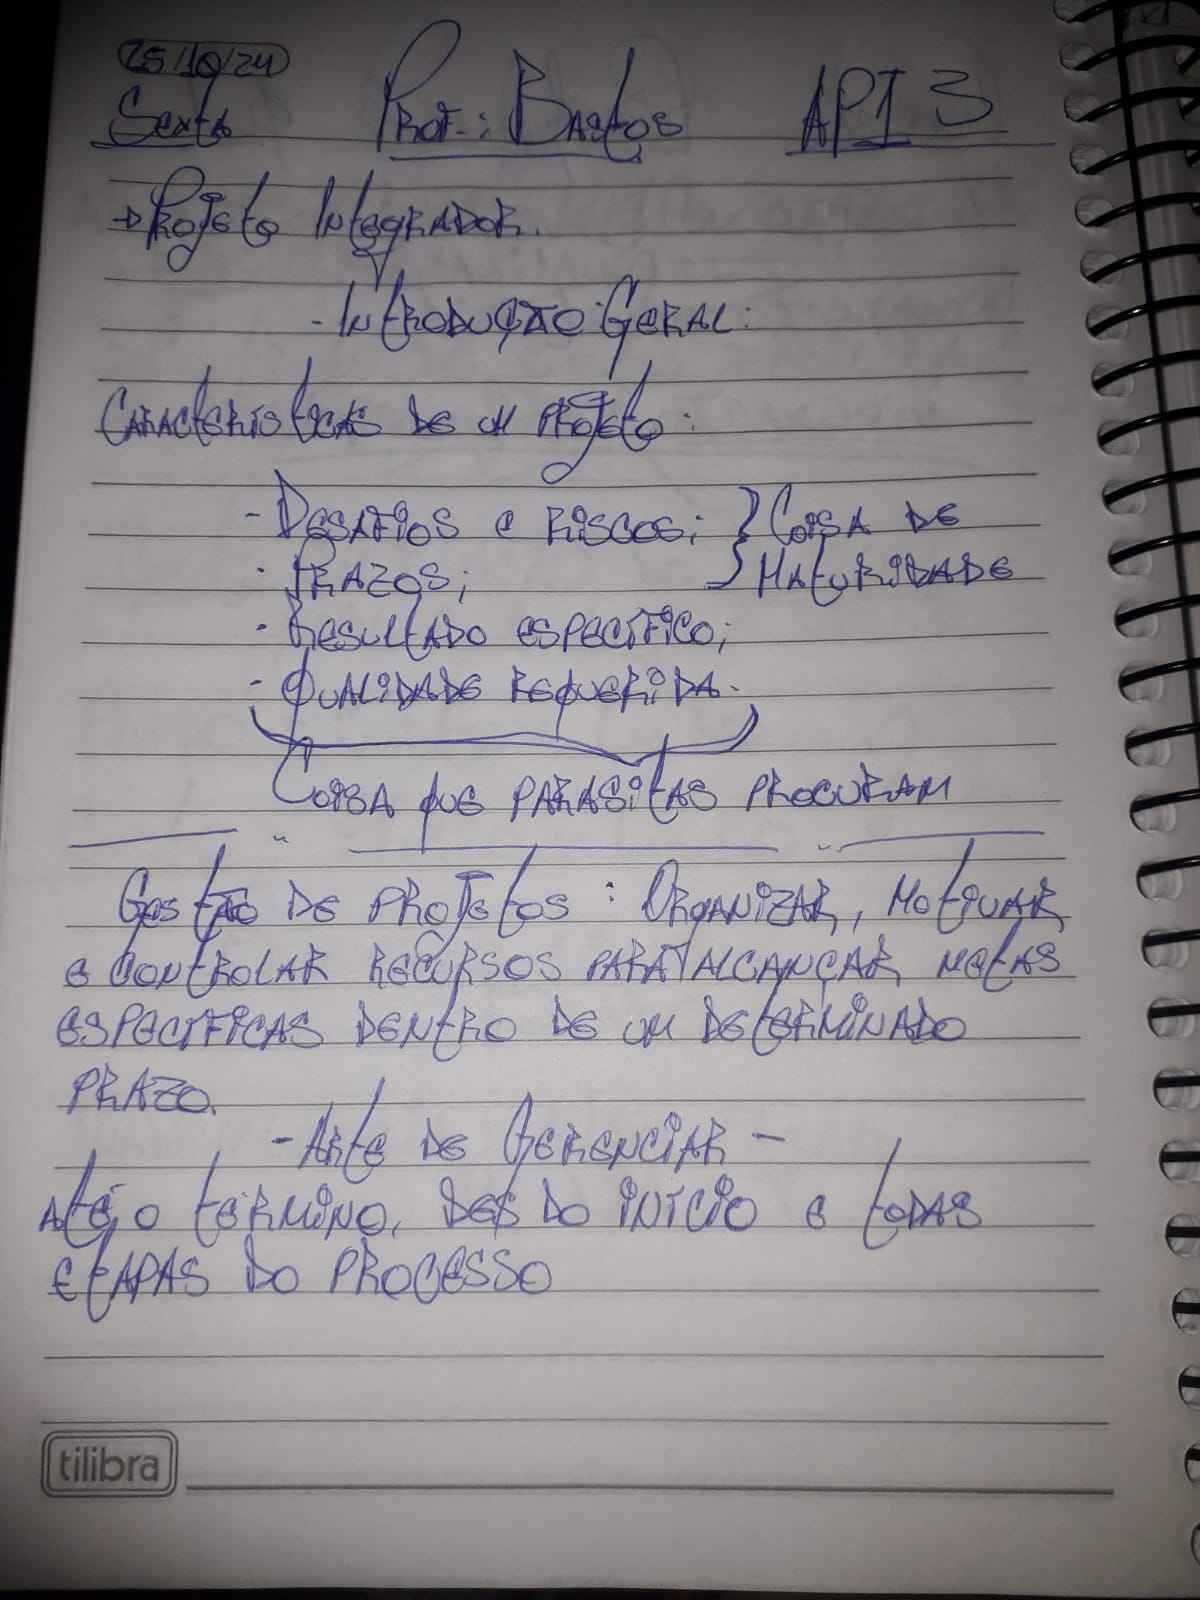 25/10/24
Sexta Prof.: Bastos API 3
→ Projeto Integrador.
- Introdução Geral:
Características de um projeto:
- Desafios e riscos; } Coisa de
- Prazos; } Maturidade
- Resultado específico;
- Qualidade requerida.
Coisa que parasitas procuram
Gestão de projetos: Organizar, motivar
e controlar recursos para alcançar metas
específicas dentro de um determinado
prazo.
- Arte de Gerenciar -
Até o término, des do início e todas
etapas do processo
tilibra